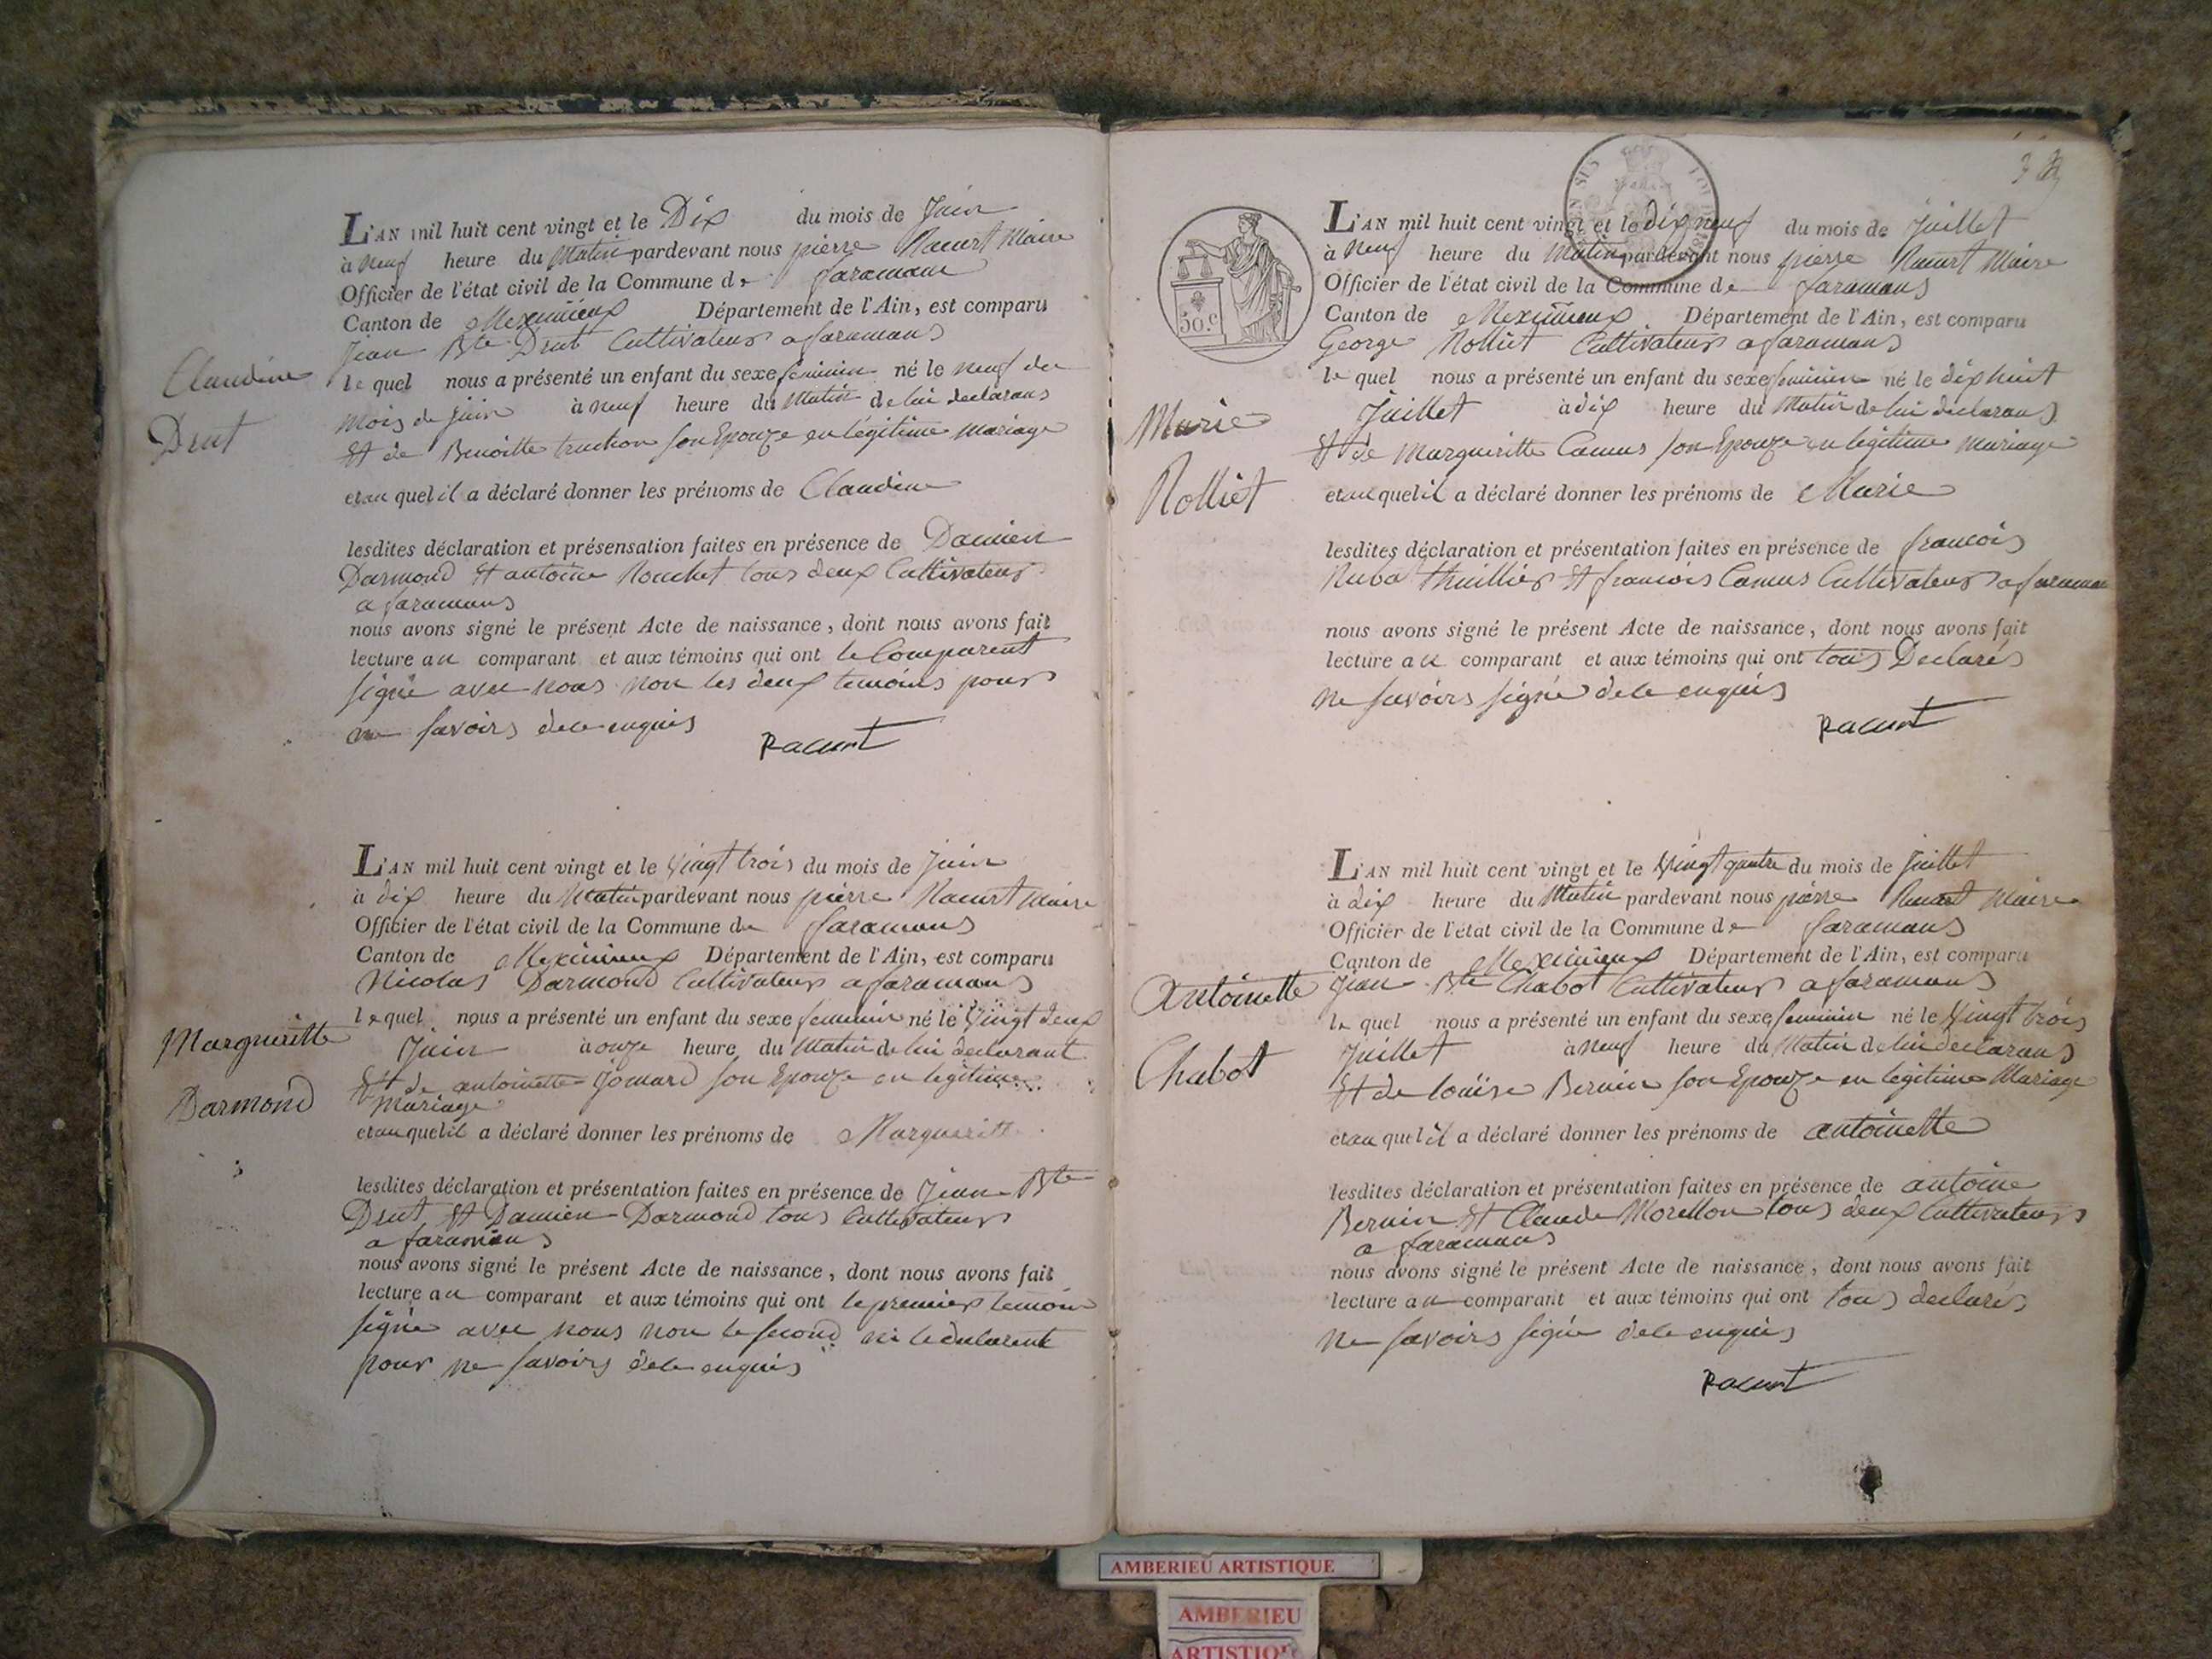 Claudine
Drut
L'AN mil huit cent vingt et le Dix du mois de Juin
à neuf heure du Matin pardevant nous pierre Racurt Maire
Officier de l'état civil de la Commune de faramans
Canton de Meximieux Département de l'Ain, est comparu
Jean Bte Drut Cultivateur a faramans
le quel nous a présenté un enfant du sexe feminin né le neuf du
mois de juin à neuf heure du Matin de lui declarans
Et de Benoitte truchon son Epouze en légitime mariage
et au quel il a déclaré donner les prénoms de Claudine
lesdites déclaration et présensation faites en présence de Damien
Darmond Et antoine Rouchet tous deux Cultivateur
a faramans
nous avons signé le présent Acte de naissance, dont nous avons fait
lecture au comparant et aux témoins qui ont le Comparent
signé avec nous non les deux temoins pour
ne savoirs de ce enquis
Racurt
Margueritte
Darmond
L'AN mil huit cent vingt et le Vingt trois du mois de Juin
à dix heure du Matin pardevant nous pierre Racurt Maire
Officier de l'état civil de la Commune de faramans
Canton de Meximieux Département de l'Ain, est comparu
Nicolas Darmond Cultivateur a faramans
le quel nous a présenté un enfant du sexe feminin né le Vingt deux
Juin à onze heure du Matin de lui declarant
Et de antoinette Jomard son Epouze en legitime
Mariage
et au quel il a déclaré donner les prénoms de Margueritt
lesdites déclaration et présentation faites en présence de Jean Bte
Drut Et Damien Darmond tous Cultivateurs
a faramans
nous avons signé le présent Acte de naissance, dont nous avons fait
lecture au comparant et aux témoins qui ont le premier temoin
signé avec nous non le second ni le declarent
pour ne savoirs de ce enquis
50.c
L'AN mil huit cent vingt et le dix neuf du mois de Juillet
à neuf heure du Matin pardevant nous pierre Racurt Maire
Officier de l'état civil de la Commune de faramans
Canton de Meximieux Département de l'Ain, est comparu
George Rolliet Cultivateur a faramans
le quel nous a présenté un enfant du sexe feminin né le dix huit
Juillet à dix heure du Matin de lui declarans
Et de Margueritte Camus son Epouze en legitime mariage
Marie
Rolliet
et au quel il a déclaré donner les prénoms de Marie
lesdites déclaration et présentation faites en présence de francois
thuillier Et francois Camus Cultivateur a faraman
nous avons signé le présent Acte de naissance, dont nous avons fait
lecture au comparant et aux témoins qui ont tous Declarés
ne savoirs signé de ce enquis
Racurt
Antoinette
Chabot
L'AN mil huit cent vingt et le Vingt quatre du mois de Juillet
à dix heure du Matin pardevant nous pierre Racurt Maire
Officier de l'état civil de la Commune de faramans
Canton de Meximieux Département de l'Ain, est comparu
Jean Bte Chabot Cultivateur a faramans
le quel nous a présenté un enfant du sexe feminin né le Vingt trois
Juillet à neuf heure du Matin de lui declarans
Et de louise Bernin son Epouze en legitime Mariage
et au quel il a déclaré donner les prénoms de antoinette
lesdites déclaration et présentation faites en présence de antoine
Bernin Et Claude Morellon tous deux Cultivateurs
a faramans
nous avons signé le présent Acte de naissance, dont nous avons fait
lecture au comparant et aux témoins qui ont tous declarés
ne savoirs signé de ce enquis
Racurt
AMBERIEU ARTISTIQUE
AMBERIEU
ARTISTIQUE